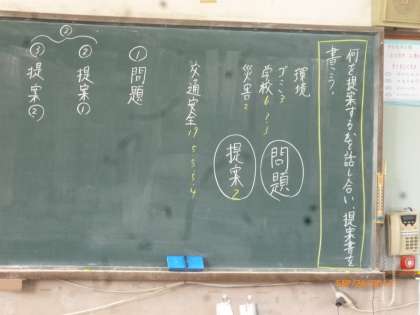 何を提案するかを話し合い、提案書を
書こう。
環境
学校6
災害2
交通安全19
5
5
5
4
問題
提案2
①問題
②提案①
③提案②
②